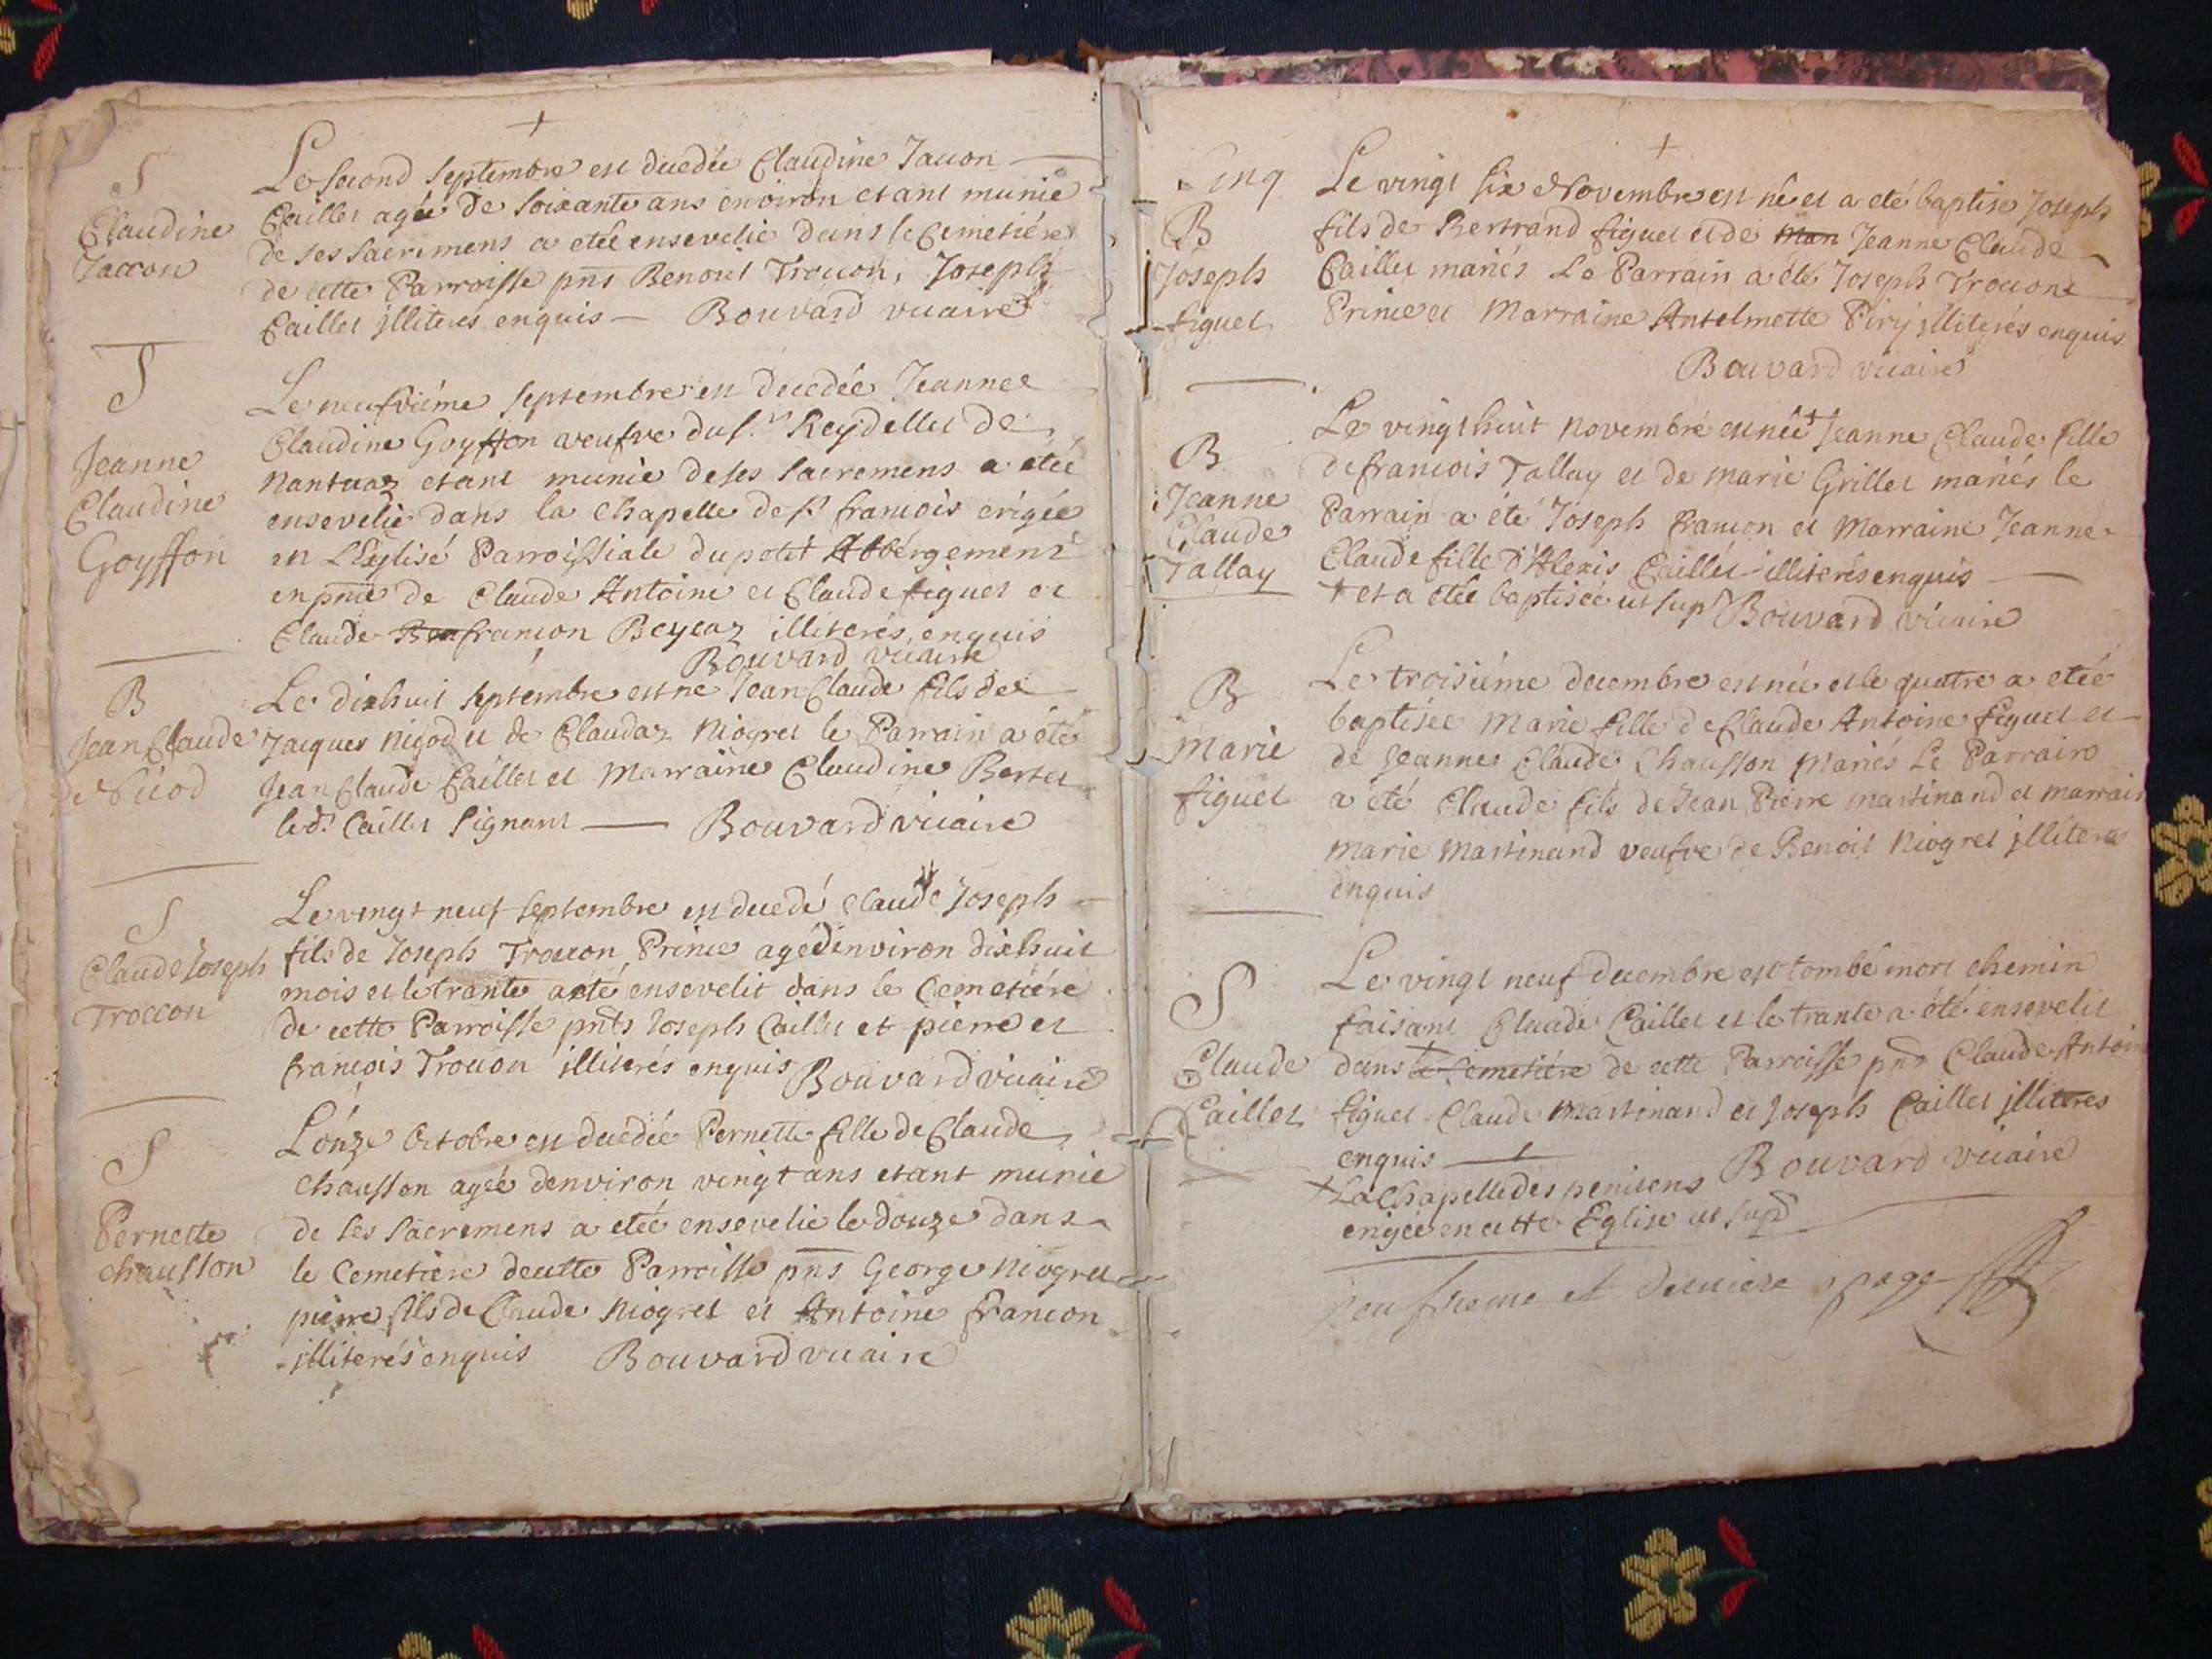 +
S
Claudine
Jaccon
Le second septembre est decedée Claudine Jacon
Caillet agée de soixante ans environ etant munie
de ses sacremens a etée ensevelie dans le Cemetiére
de cette Parroisse pns Benoict Trocon, Joseph
Caillet jlliterés enquis — Bouvard vicaire
S
Jeanne
Claudine
Goyffon
Le neufviéme septembre est decedée Jeanne
Claudine Goyffon veufve du sr Reydellet de
Nantuaz etant munie de ses sacremens a etée
ensevelie dans la chapelle de st francois erigée
en L'Eglise Parroissiale du petit Abbérgement
en pnce de Claude Antoine et Claude figuet et
Claude Ben francon Beycaz illiterés enquis
Bouvard vicaire
B
Jean Claude
Nicod
Le dixhuit septembre est ne Jean Claude fils de
Jacques Nicod et de Claudaz Niogret le Parrain a été
Jean Claude Caillet et Marraine Claudine Bertet
led.t Caillet signant — Bouvard vicaire
S
Claude Joseph
Troccon
Le vingt neuf septembre est decedé Claude Joseph
fils de Joseph Troccon Prince agé d'environ dixhuit
mois et le trante a eté ensevelit dans le Cemetiére
de cette Parroisse pnts Joseph Caillet et pierre et
francois Trocon illiterés enquis Bouvard vicaire
S
Pernette
Chausson
L'onze Octobre est decedée Pernette fille de Claude
Chausson agée denviron vingt ans etant munie
de ses sacremens a etée ensevelie le douze dans
le Cemetiére de cette Parroisse pns George Niogret
pierre fils de Claude Niogret et Antoine francon
illiterés enquis Bouvard vicaire
+
cinq
B
Joseph
figuet
Le vingt six Novembre est né et a eté baptisé Joseph
fils de Bertrand figuet et de Mari Jeanne Claude
Caillet mariés Le Parrain a été Joseph Trocon
Prince et Marraine Antelmette Piry illiterés enquis
Bouvard vicaire
B
Jeanne
Claude
Tallay
Le vingt huit Novembre est née + Jeanne Claude fille
de francois Tallay et de Marie Grillet mariés le
Parrain a été Joseph francon et Marraine Jeanne
Claude fille d'Alexis Caillet illiterés enquis
+ et a etée baptisée ut sup Bouvard vicaire
B
Marie
figuet
Le troisiéme decembre est née et le quatre a etée
baptisée Marie fille de Claude Antoine figuet et
de Jeanne Claude Chausson Mariés Le Parrain
a été Claude fils de Jean Pierre Martinand et marrain
Marie Martinand veufve de Benoit Niogret jlliteres
enquis
S
Claude
Caillet
Le vingt neuf decembre est tombé mort chemin
faisant Claude Caillet et le trante a été ensevelit
dans + le Cemetiére de cette Parroisse pns Claude Antoin
figuet Claude Martinand et Joseph Caillet jlliteres
enquis — Bouvard vicaire
+ La Chapelle des penitens
erigée en cette Eglise ut sup
neufvieme et derniere page